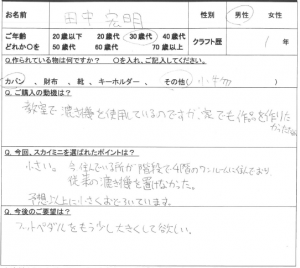 お名前 田中 宏明 性別 男性 女性
ご年齢 20歳以下 20歳代 30歳代 40歳代 クラフト歴 1年
どれか○を 50歳代 60歳代 70歳以上
Q.作られている物は何ですか？ ○を入れ、ご記入してください。
カバン 、 財布 、 靴 、 キーホルダー 、 その他( 小物 )
Q. ご購入の動機は？
教室で漉き機を使用しているのですが、家でも作品を作りた
かったため
Q. 今回、スカイミニを選ばれたポイントは？
小さい。 今住んでいる所が階段で4階のワンルームに住んでおり
従来の漉き機を置けなかった。
予想以上に小さくおどろいています。
Q. 今後のご要望は？
フットペダルをもう少し大きくして欲しい。